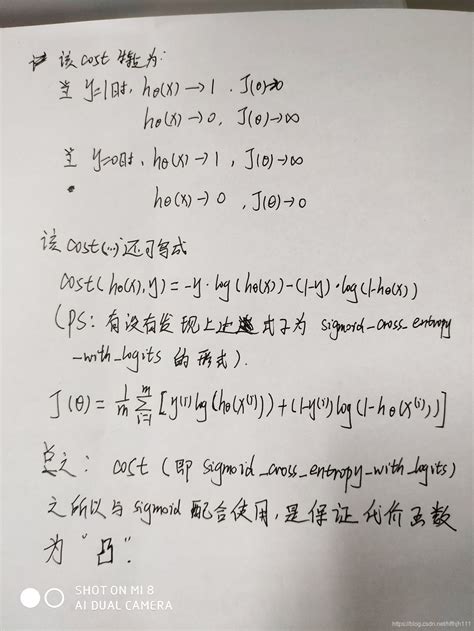 该cost特征为:
当 y=1时, hθ(x)→1, J(θ)→0
hθ(x)→0, J(θ)→∞
当 y=0时, hθ(x)→1, J(θ)→∞
hθ(x)→0, J(θ)→0
该cost(…)还可写成
cost(hθ(x),y)=-y·log(hθ(x))-(1-y)·log(1-hθ(x))
(PS:有没有发现上边式子为 sigmoid_cross_entropy
_with_logits 的形式).
J(θ)=1/m ∑_{i=1}^{m}[y⁽ⁱ⁾log(hθ(x⁽ⁱ⁾))+(1-y⁽ⁱ⁾)log(1-hθ(x⁽ⁱ⁾))]
总之: cost(即 sigmoid_cross_entropy_with_logits)
之所以与 sigmoid 配合使用,是保证代价函数
为“凸”.
SHOT ON MI 8
AI DUAL CAMERA